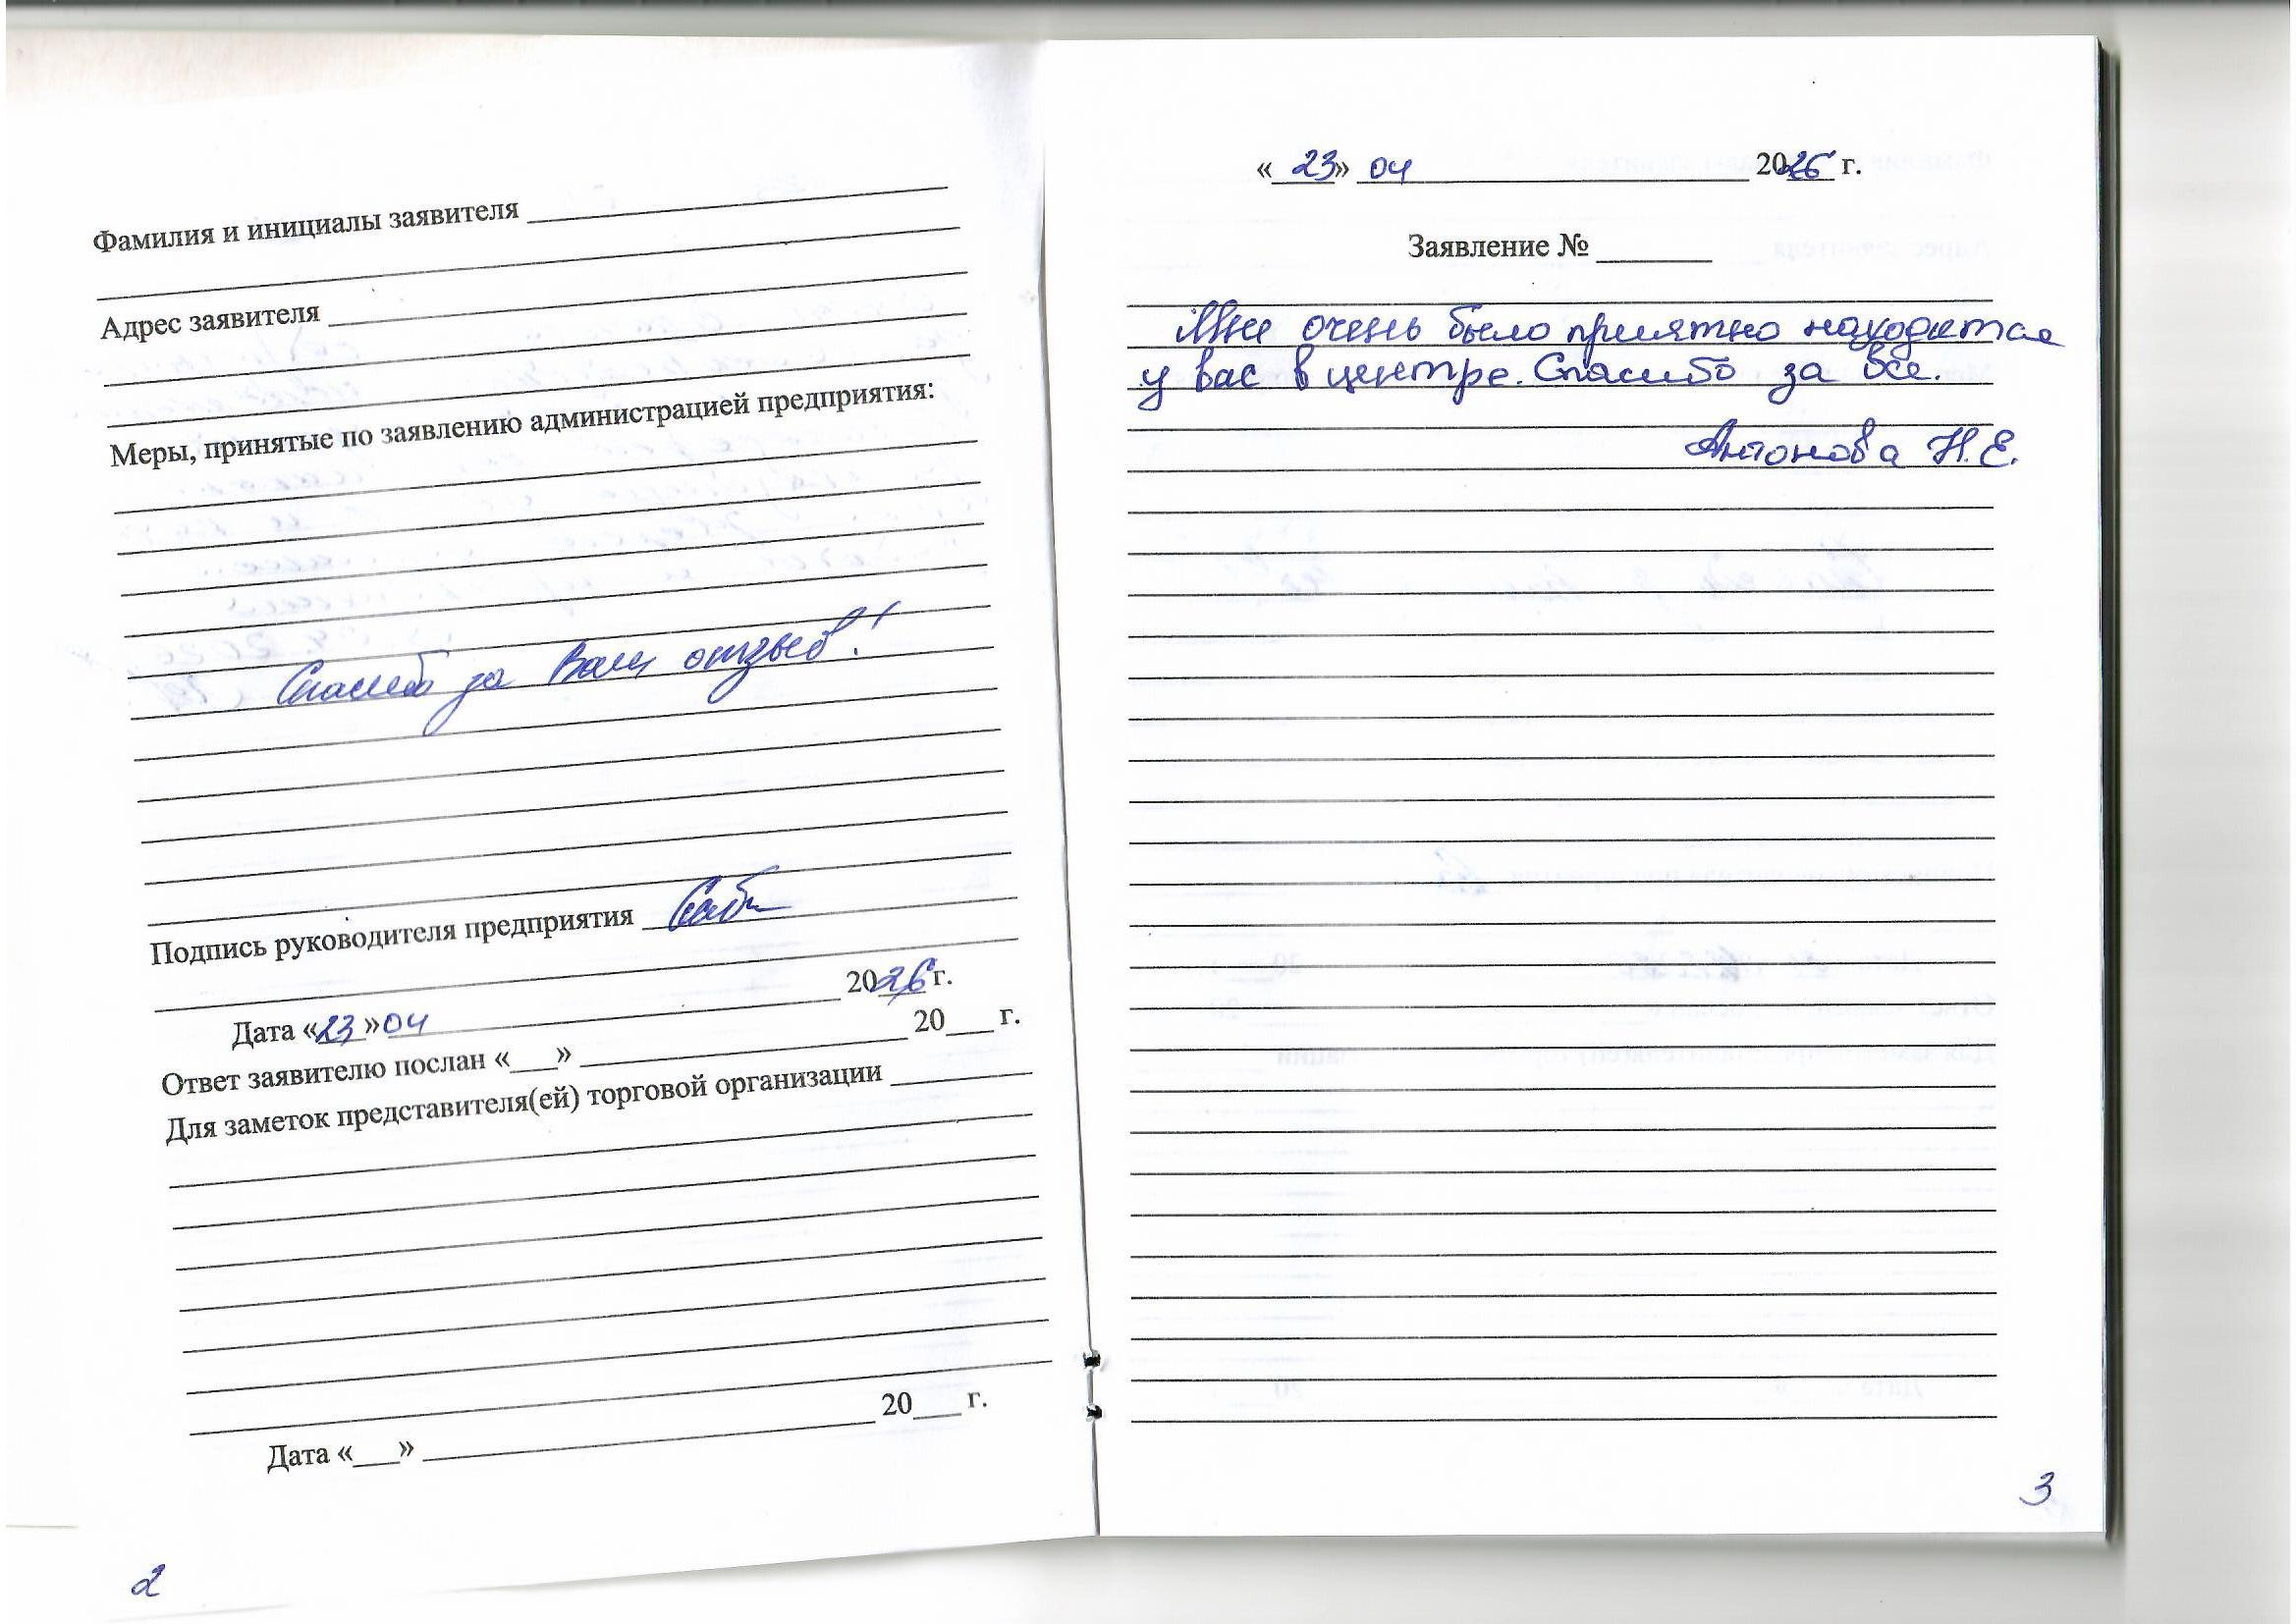 Фамилия и инициалы заявителя
Адрес заявителя
Меры, принятые по заявлению администрацией предприятия:
Спасибо за Ваш отзыв!
Подпись руководителя предприятия
Дата «23» 04 2026 г.
Ответ заявителю послан «___» 20___ г.
Для заметок представителя(ей) торговой организации
Дата «___» 20___ г.
2
«23» 04 2026 г.
Заявление №
Мне очень было приятно находится
у вас в центре. Спасибо за все.
Антонова Н.Е.
3